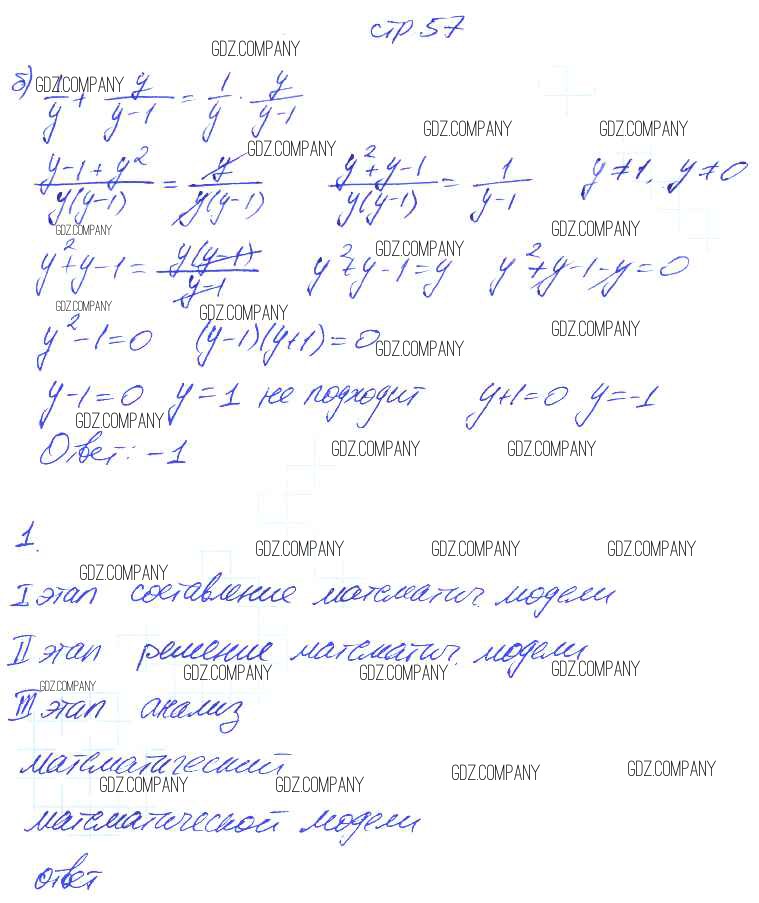 стр 57
GDZ.COMPANY
б) 1/y + y/(y-1) = 1/y · y/(y-1)
GDZ.COMPANY
GDZ.COMPANY GDZ.COMPANY
GDZ.COMPANY
(y-1+y²)/(y(y-1)) = y/(y(y-1)) (y²+y-1)/(y(y-1)) = 1/(y-1) y≠1, y≠0
GDZ.COMPANY GDZ.COMPANY
GDZ.COMPANY
y²+y-1 = y(y-1)/(y-1) y²+y-1=y y²+y-1-y=0
GDZ.COMPANY GDZ.COMPANY GDZ.COMPANY
y²-1=0 (y-1)(y+1)=0
GDZ.COMPANY
y-1=0 y=1 не подходит y+1=0 y=-1
GDZ.COMPANY
Ответ: -1
GDZ.COMPANY GDZ.COMPANY
1.
GDZ.COMPANY GDZ.COMPANY GDZ.COMPANY
GDZ.COMPANY
I этап составление математич. модели
II этап решение математич. модели
GDZ.COMPANY GDZ.COMPANY GDZ.COMPANY
GDZ.COMPANY
III этап анализ
математический
GDZ.COMPANY GDZ.COMPANY GDZ.COMPANY GDZ.COMPANY
математической модели
ответ